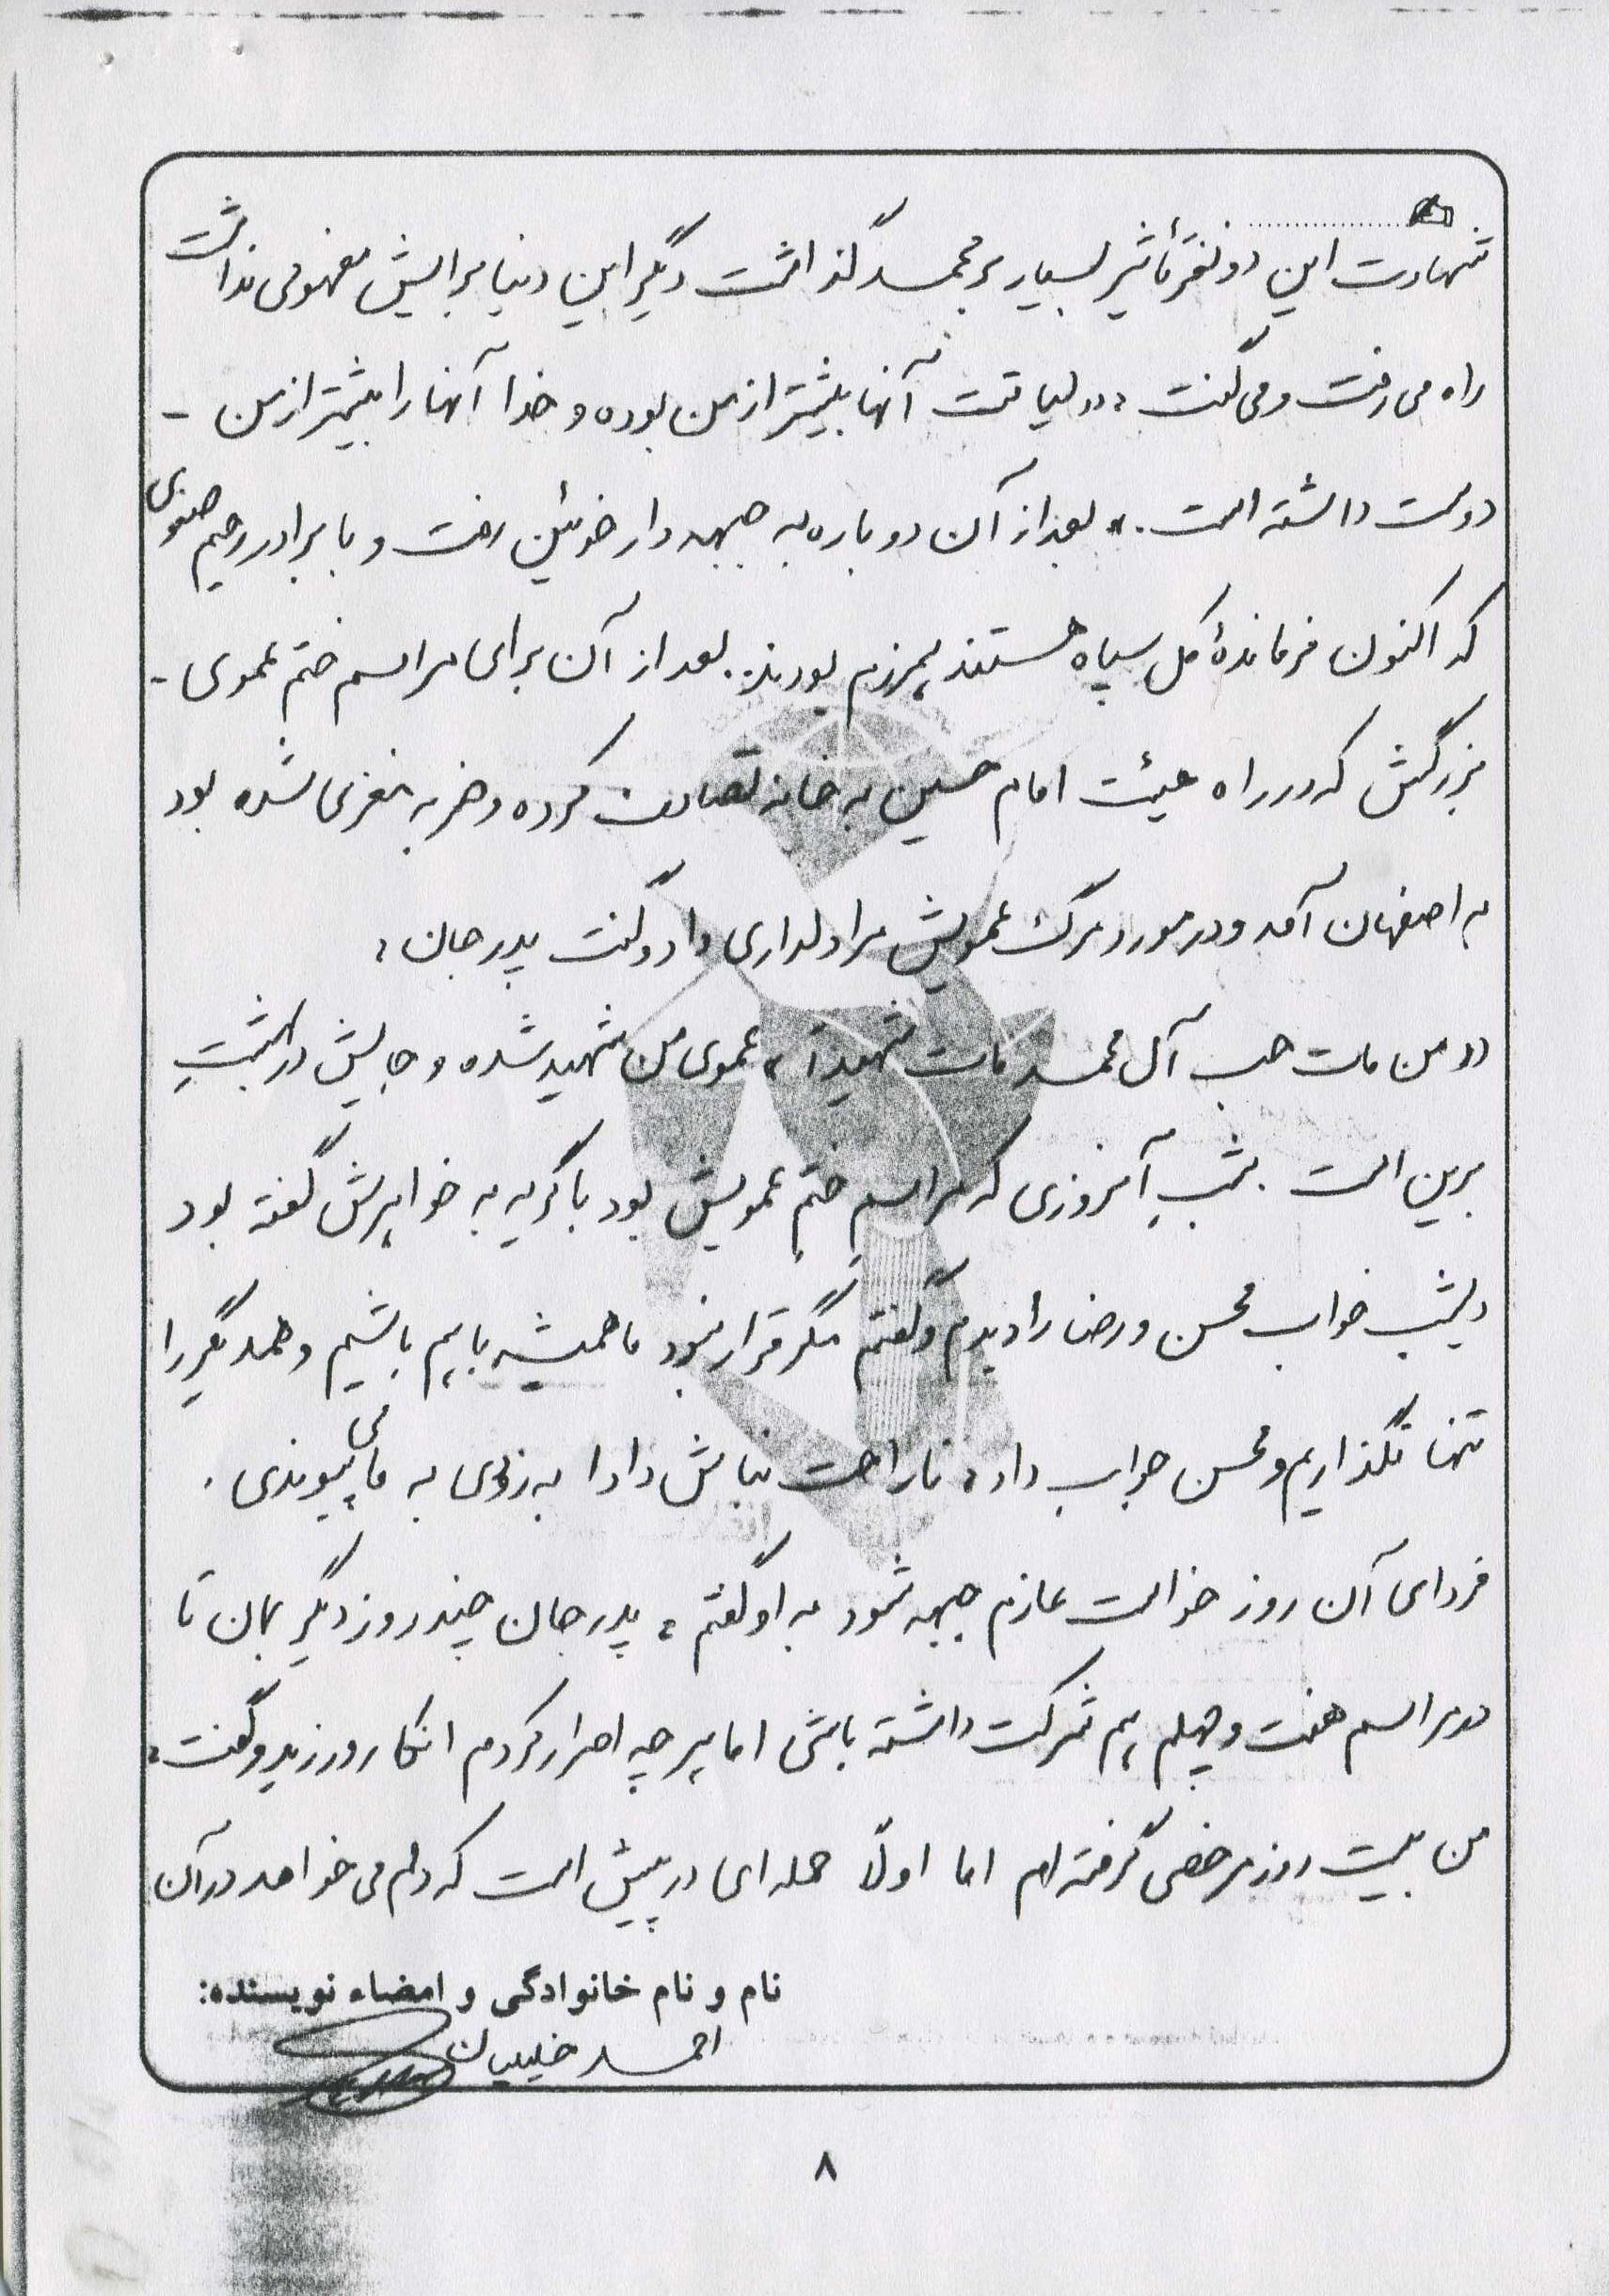 شهادت این دو نفر تأثیر بسیار بر محمد گذاشت دیگر این دنیا برایش مفهومی نداشت
راه می رفت و می گفت : «لیاقت آنها بیشتر از من بوده و خدا آنها را بیشتر از من -
دوست داشته است .» بعد از آن دوباره به جبهه دارخوئین رفت و با برادر رحیم صفوی
که اکنون فرماندهٔ کل سپاه هستند همرزم بودند. بعد از آن برای مراسم ختم عموی -
بزرگش که در راه هیئت امام حسین به خانه تصادف کرده و ضربه مغزی شده بود
به اصفهان آمد و در مورد مرگ عمویش مرا دلداری داد و گفت پدر جان :
«من مات حب آل محمد مات شهیداً» عموی من شهید شده و جایش در بهشتِ
برین است . شبِ آنروزی که مراسم ختم عمویش بود با گریه به خواهرش گفته بود
دیشب خواب محسن و رضا را دیدم و گفتم مگر قرار نبود ما همیشه با هم باشیم و همدیگر را
تنها نگذاریم و محسن جواب داد : ناراحت نباش دادا به زودی به ما می پیوندی .
فردای آن روز خواست عازم جبهه شود به او گفتم : پدر جان چند روز دیگر بمان تا
در مراسم هفت و چهلم هم شرکت داشته باشی اما هر چه اصرار کردم انکار ورزید و گفت :
من بیست روز مرخصی گرفته ام اما اولاً حمله ای در پیش است که دلم می خواهد در آن
نام و نام خانوادگی و امضاء نویسنده:
احمد خلیلیان
۸